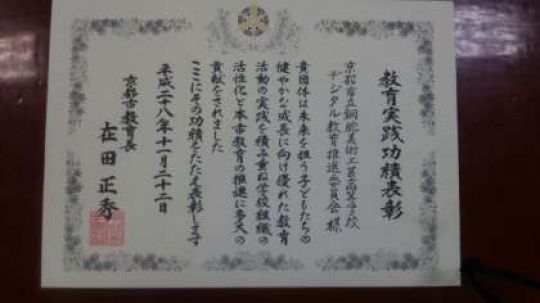 教育実践功績表彰
京都市立銅駝美術工芸高等学校
デジタル教育推進委員会 様
貴団体は未来を担う子どもたちの
健やかな成長に向け優れた教育
活動の実践を積み重ね学校組織の
活性化と本市教育の推進に多大の
貢献をされました
ここにその功績をたたえ表彰します
平成二十八年十一月二十二日
京都市教育長
在田正秀